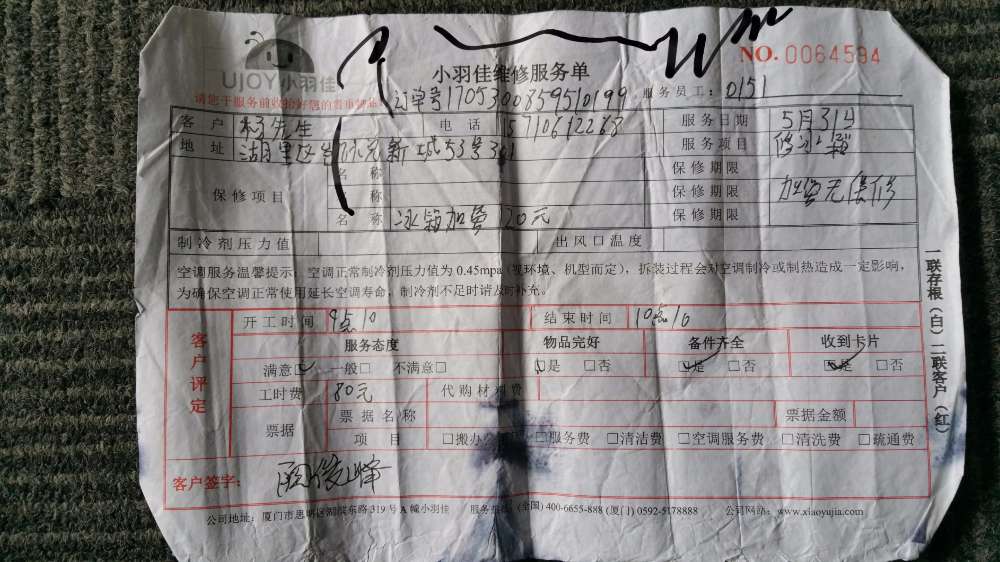 UJOY小羽佳
小羽佳维修服务单
NO.0064594
请您于服务前收拾好您的贵重物品
订单号1705300859510199 服务员工:0151
客户 杨先生 电话 15710612268 服务日期 5月31日
地址 新城53号 服务项目 修冰箱
保修项目 名称 保修期限
称 保修期限 加雪无保修
名称 冰箱加雪120元 保修期限
制冷剂压力值 出风口温度
空调服务温馨提示:空调正常制冷剂压力值为0.45mpa(视环境、机型而定),拆装过程会对空调制冷或制热造成一定影响,
为确保空调正常使用延长空调寿命,制冷剂不足时请及时补充。
客户评定
开工时间 9点10 结束时间 10点10
服务态度 物品完好 备件齐全 收到卡片
满意□ 一般□ 不满意□ □是 □否 □是 □否 □是 □否
工时费 80元 代购材料费
票据 票据名称 票据金额
项目 □搬办公 □服务费 □清洁费 □空调服务费 □清洗费 □疏通费
客户签字:
一联存根(白)二联客户(红)
公司地址:厦门市思明区湖滨东路319号A幢小羽佳 服务热线:(全国)400-6655-888(厦门)0592-5178888 公司网站:www.xiaoyujia.com